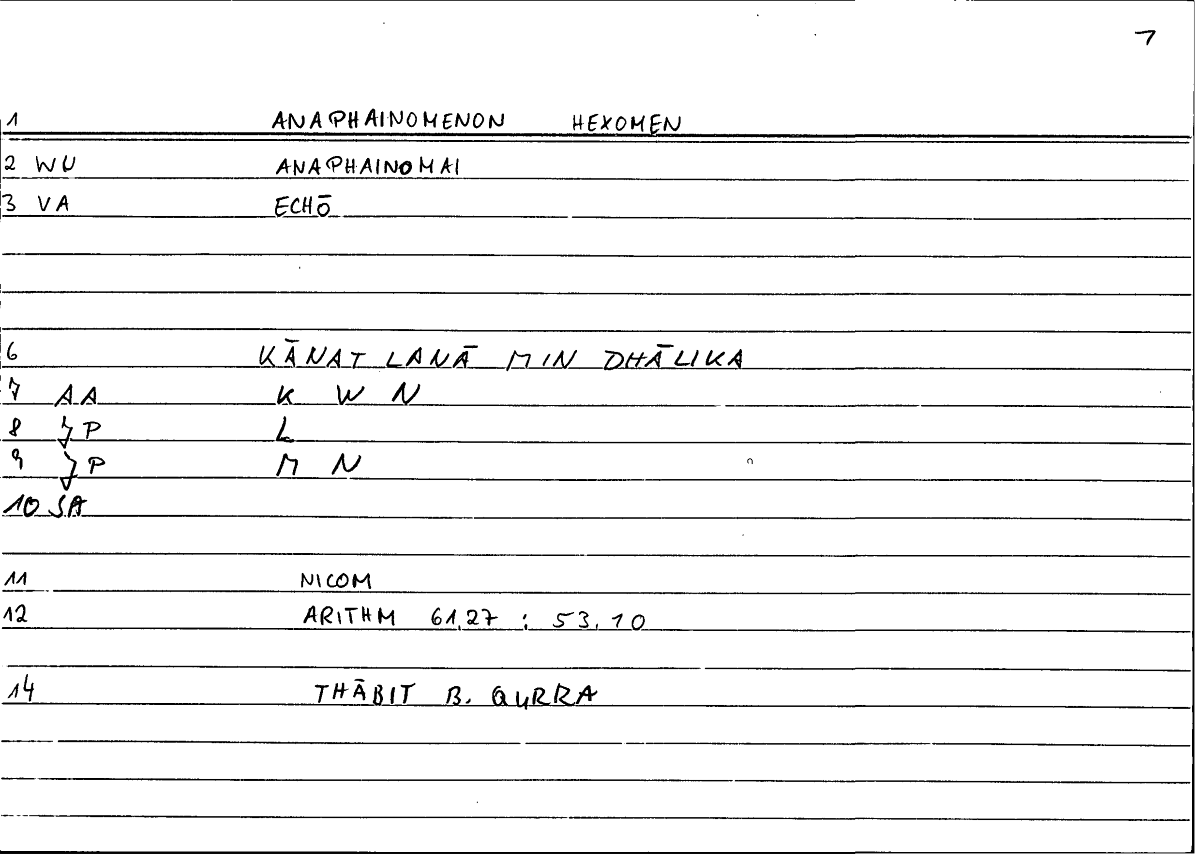 7
1 ANAPHAINOMENON HEXOMEN
2 WU ANAPHAINOMAI
3 VA ECHŌ
6 KĀNAT LANĀ MIN DHĀLIKA
7 AA K W N
8 P L
9 P M N
10 SA
11 NICOM
12 ARITHM 61,27 : 53.10
14 THĀBIT B. QURRA